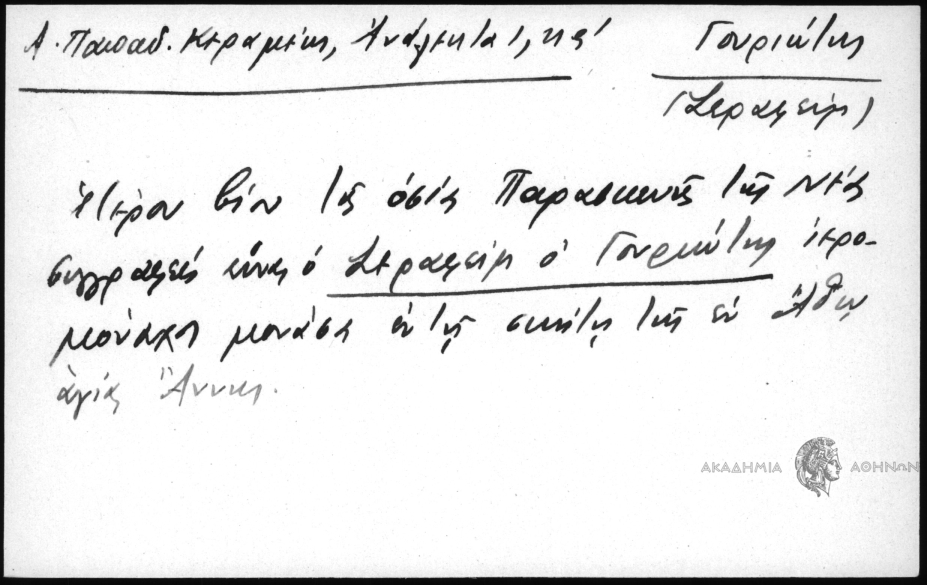 Α. Παπαδ. Κεραμέως, Ἀνάλεκτα 1, κε΄
Γουριώτης
(Σεραφείμ)
Ἕτερον βίον τῆς ὁσίας Παρασκευῆς τῆς Νέας
συγγραφεὺς εἶναι ὁ Σεραφείμ ὁ Γουριώτης ἱερο-
μόναχος μονάσας ἐν τῇ σκήτῃ τῆς ἐν Ἄθῳ
ἁγίας Ἄννης.
ΑΚΑΔΗΜΙΑ ΑΘΗΝΩΝ